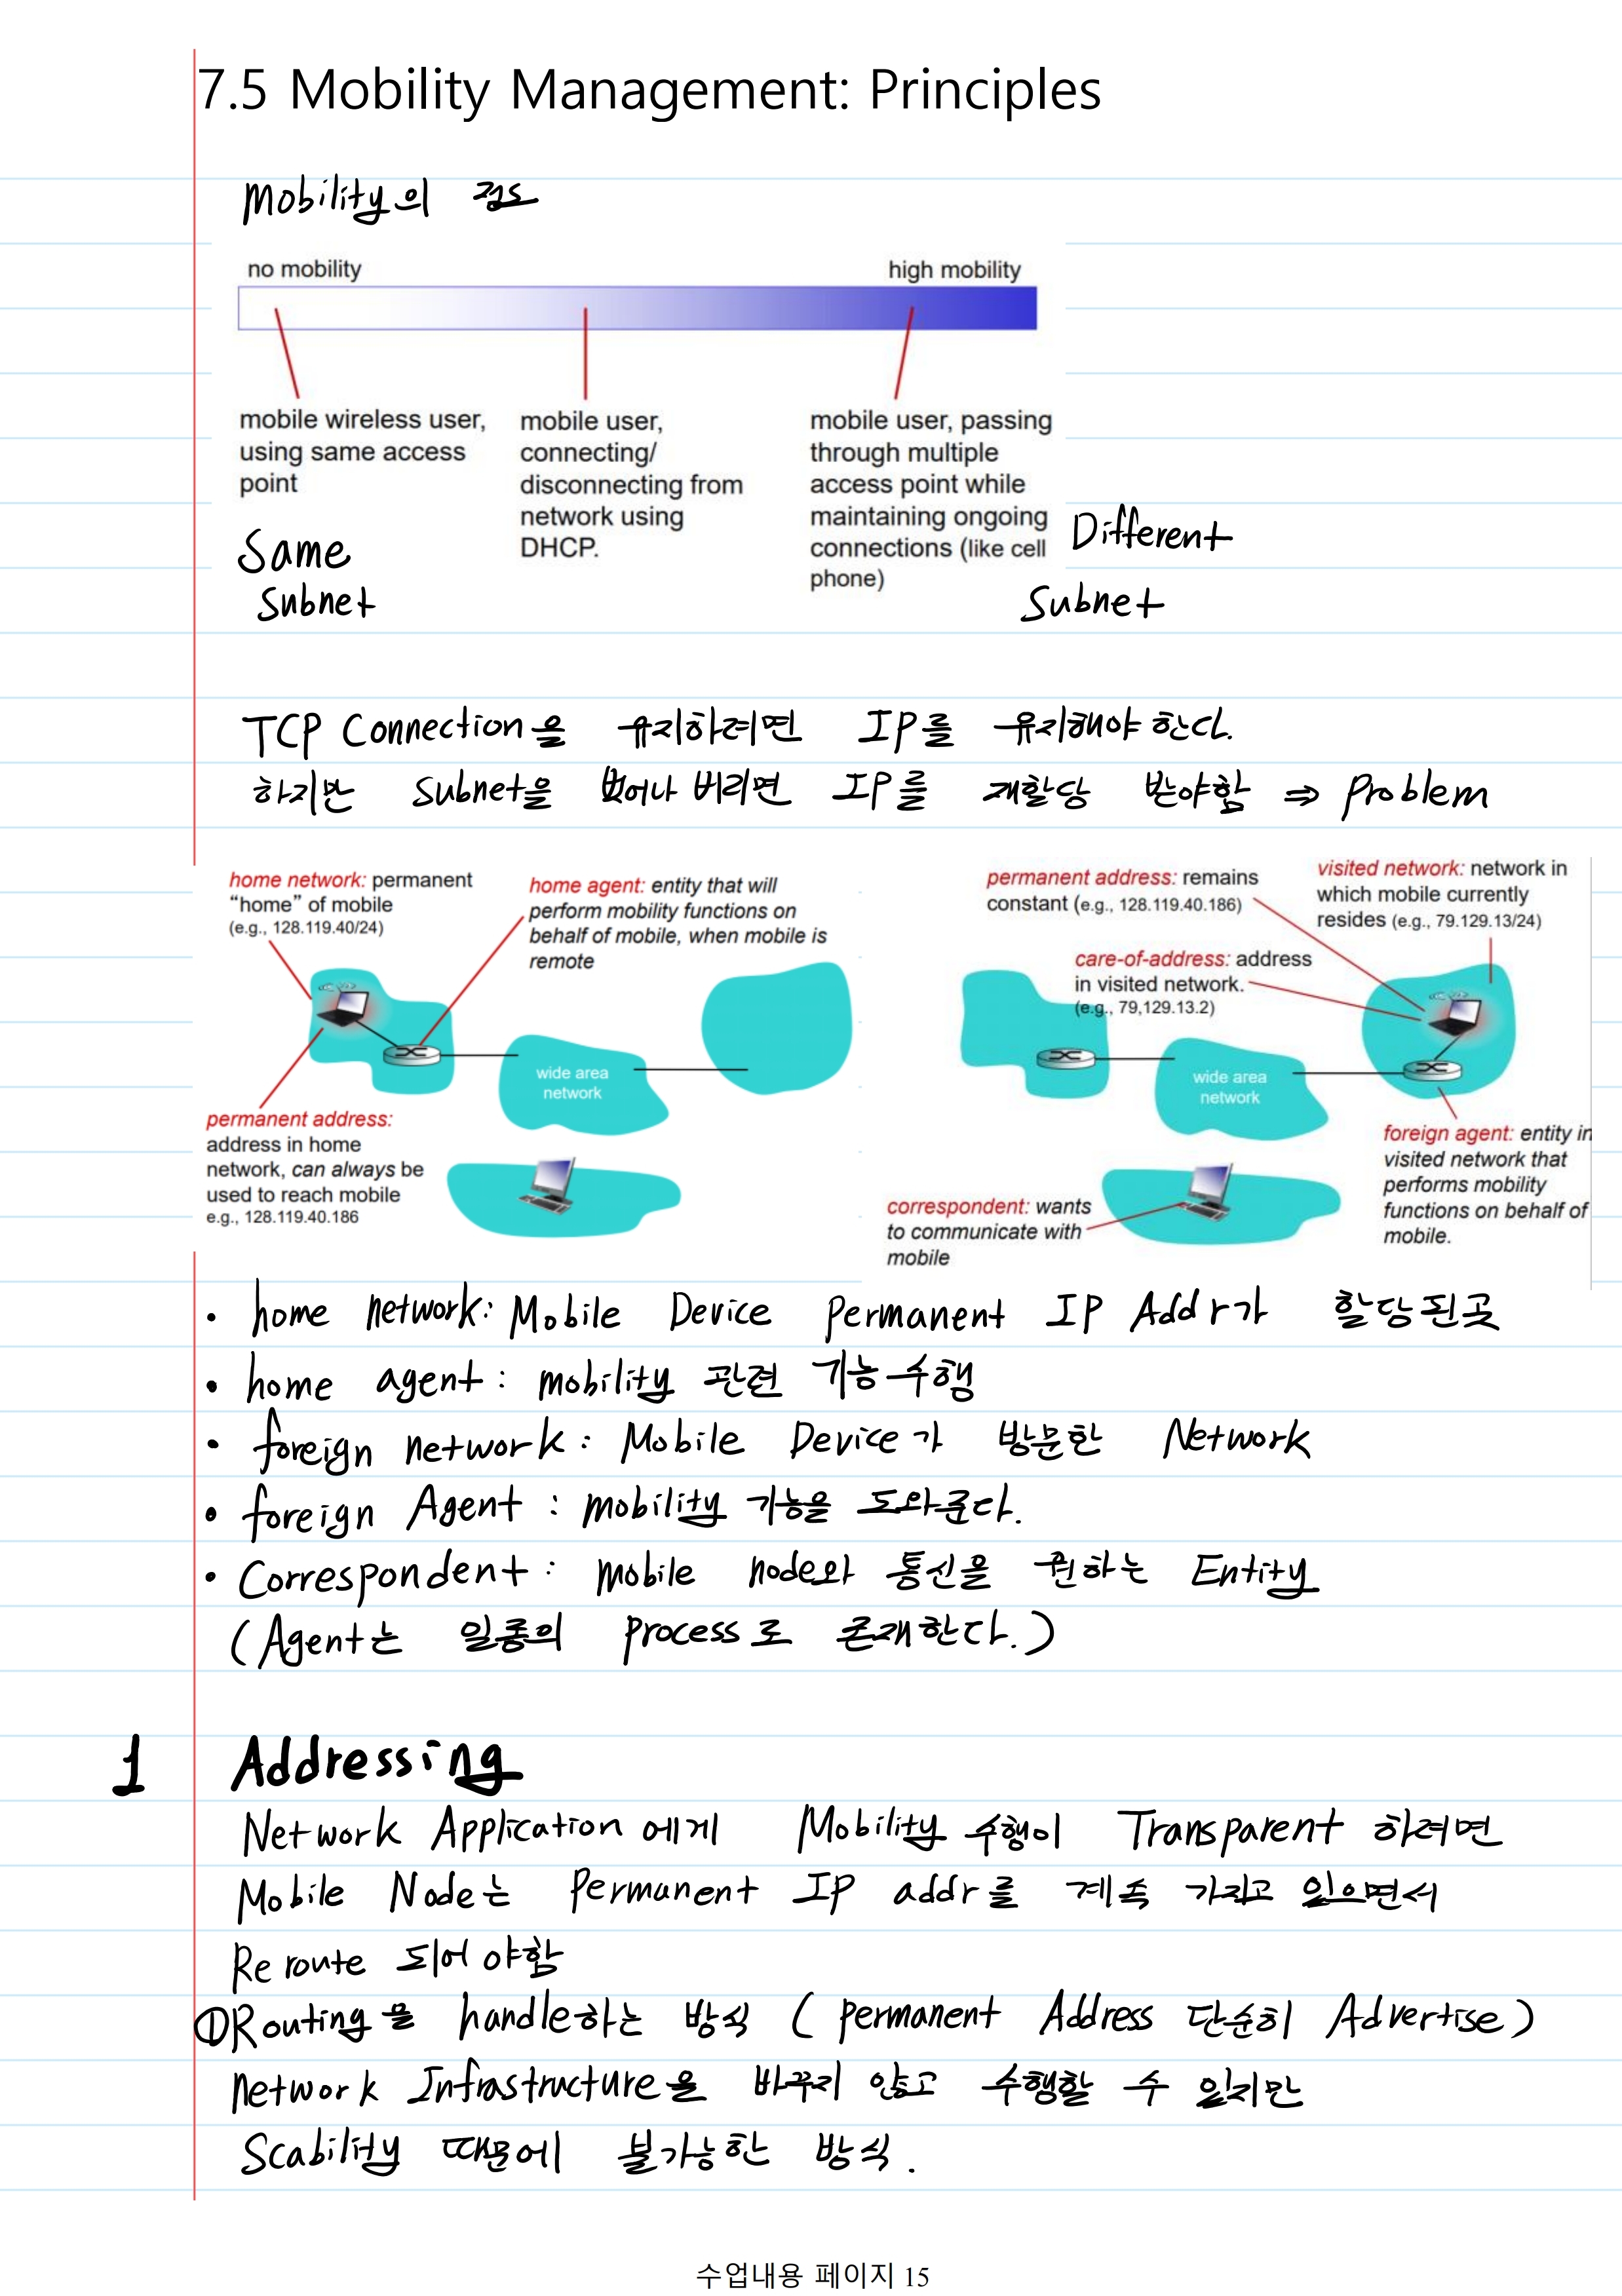 7.5 Mobility Management: Principles
Mobility의 정도
no mobility
high mobility
mobile wireless user,
using same access
point
mobile user,
connecting/
disconnecting from
network using
DHCP.
mobile user, passing
through multiple
access point while
maintaining ongoing
connections (like cell
phone)
Same
Subnet
Different
Subnet
TCP Connection을 유지하려면 IP를 유지해야 한다.
하지만 Subnet을 벗어나 버리면 IP를 재할당 받야함 ⇒ Problem
home network: permanent
“home” of mobile
(e.g., 128.119.40/24)
home agent: entity that will
perform mobility functions on
behalf of mobile, when mobile is
remote
wide area
network
permanent address:
address in home
network, can always be
used to reach mobile
e.g., 128.119.40.186
permanent address: remains
constant (e.g., 128.119.40.186)
visited network: network in
which mobile currently
resides (e.g., 79.129.13/24)
care-of-address: address
in visited network.
(e.g., 79,129.13.2)
wide area
network
foreign agent: entity in
visited network that
performs mobility
functions on behalf of
mobile.
correspondent: wants
to communicate with
mobile
• home network: Mobile Device Permanent IP Addr가 할당된곳
• home agent : mobility 관련 기능 수행
• foreign network : Mobile Device가 방문한 Network
• foreign Agent : mobility 기능을 도와준다.
• Correspondent : mobile node와 통신을 원하는 Entity
(Agent는 일종의 process로 존재한다.)
1 Addressing
Network Application에게 Mobility 수행이 Transparent 하려면
Mobile Node는 Permanent IP addr를 계속 가지고 있으면서
Reroute 되어야함
①Routing을 handle하는 방식 (permanent Address 단순히 Advertise)
network Infrastructure을 바꾸지 않고 수행할 수 있지만
Scability 때문에 불가능한 방식.
수업내용 페이지 15